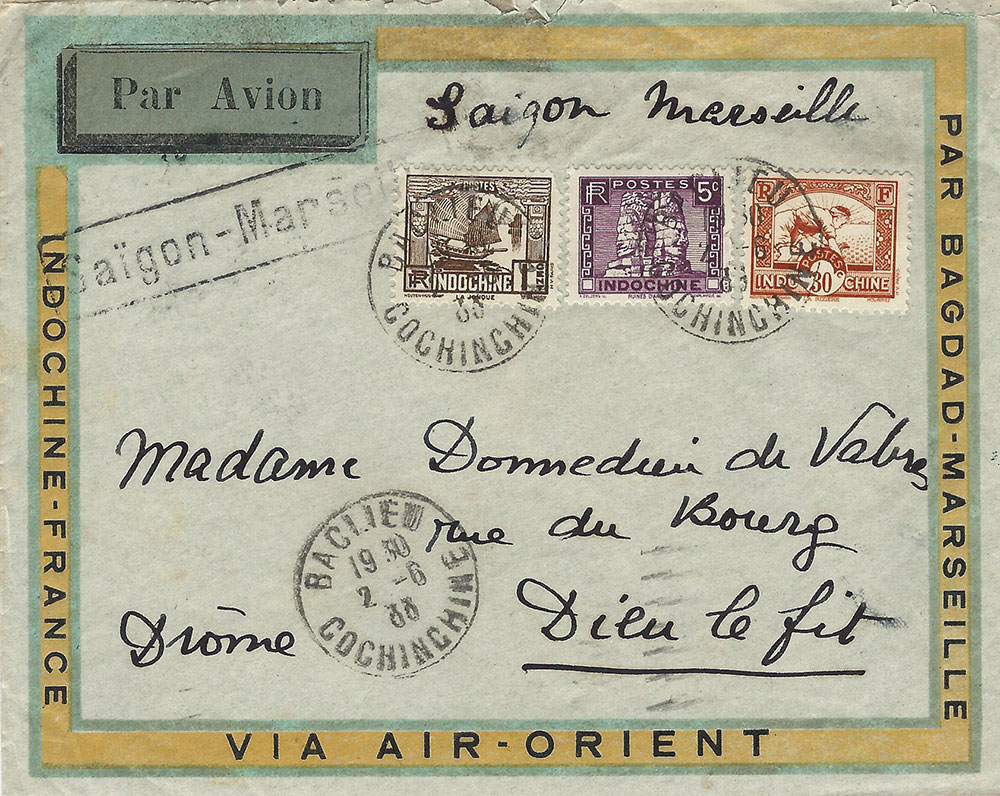 Par Avion
Saïgon Marseille
Saïgon-Marse
POSTES
RF
INDOCHINE
JONQUE
RF POSTES 5c
INDOCHINE
RUINES D'ANGKOR
R F
POSTES
INDO 30 CHINE
COCHINCHINE
COCHINCHINE
Madame Donnedieu de Vabres
rue du Bourg
Dieu le fit
Drôme
BACLIEU
19 30
2 -6
33
COCHINCHINE
INDOCHINE-FRANCE
PAR BAGDAD-MARSEILLE
VIA AIR-ORIENT